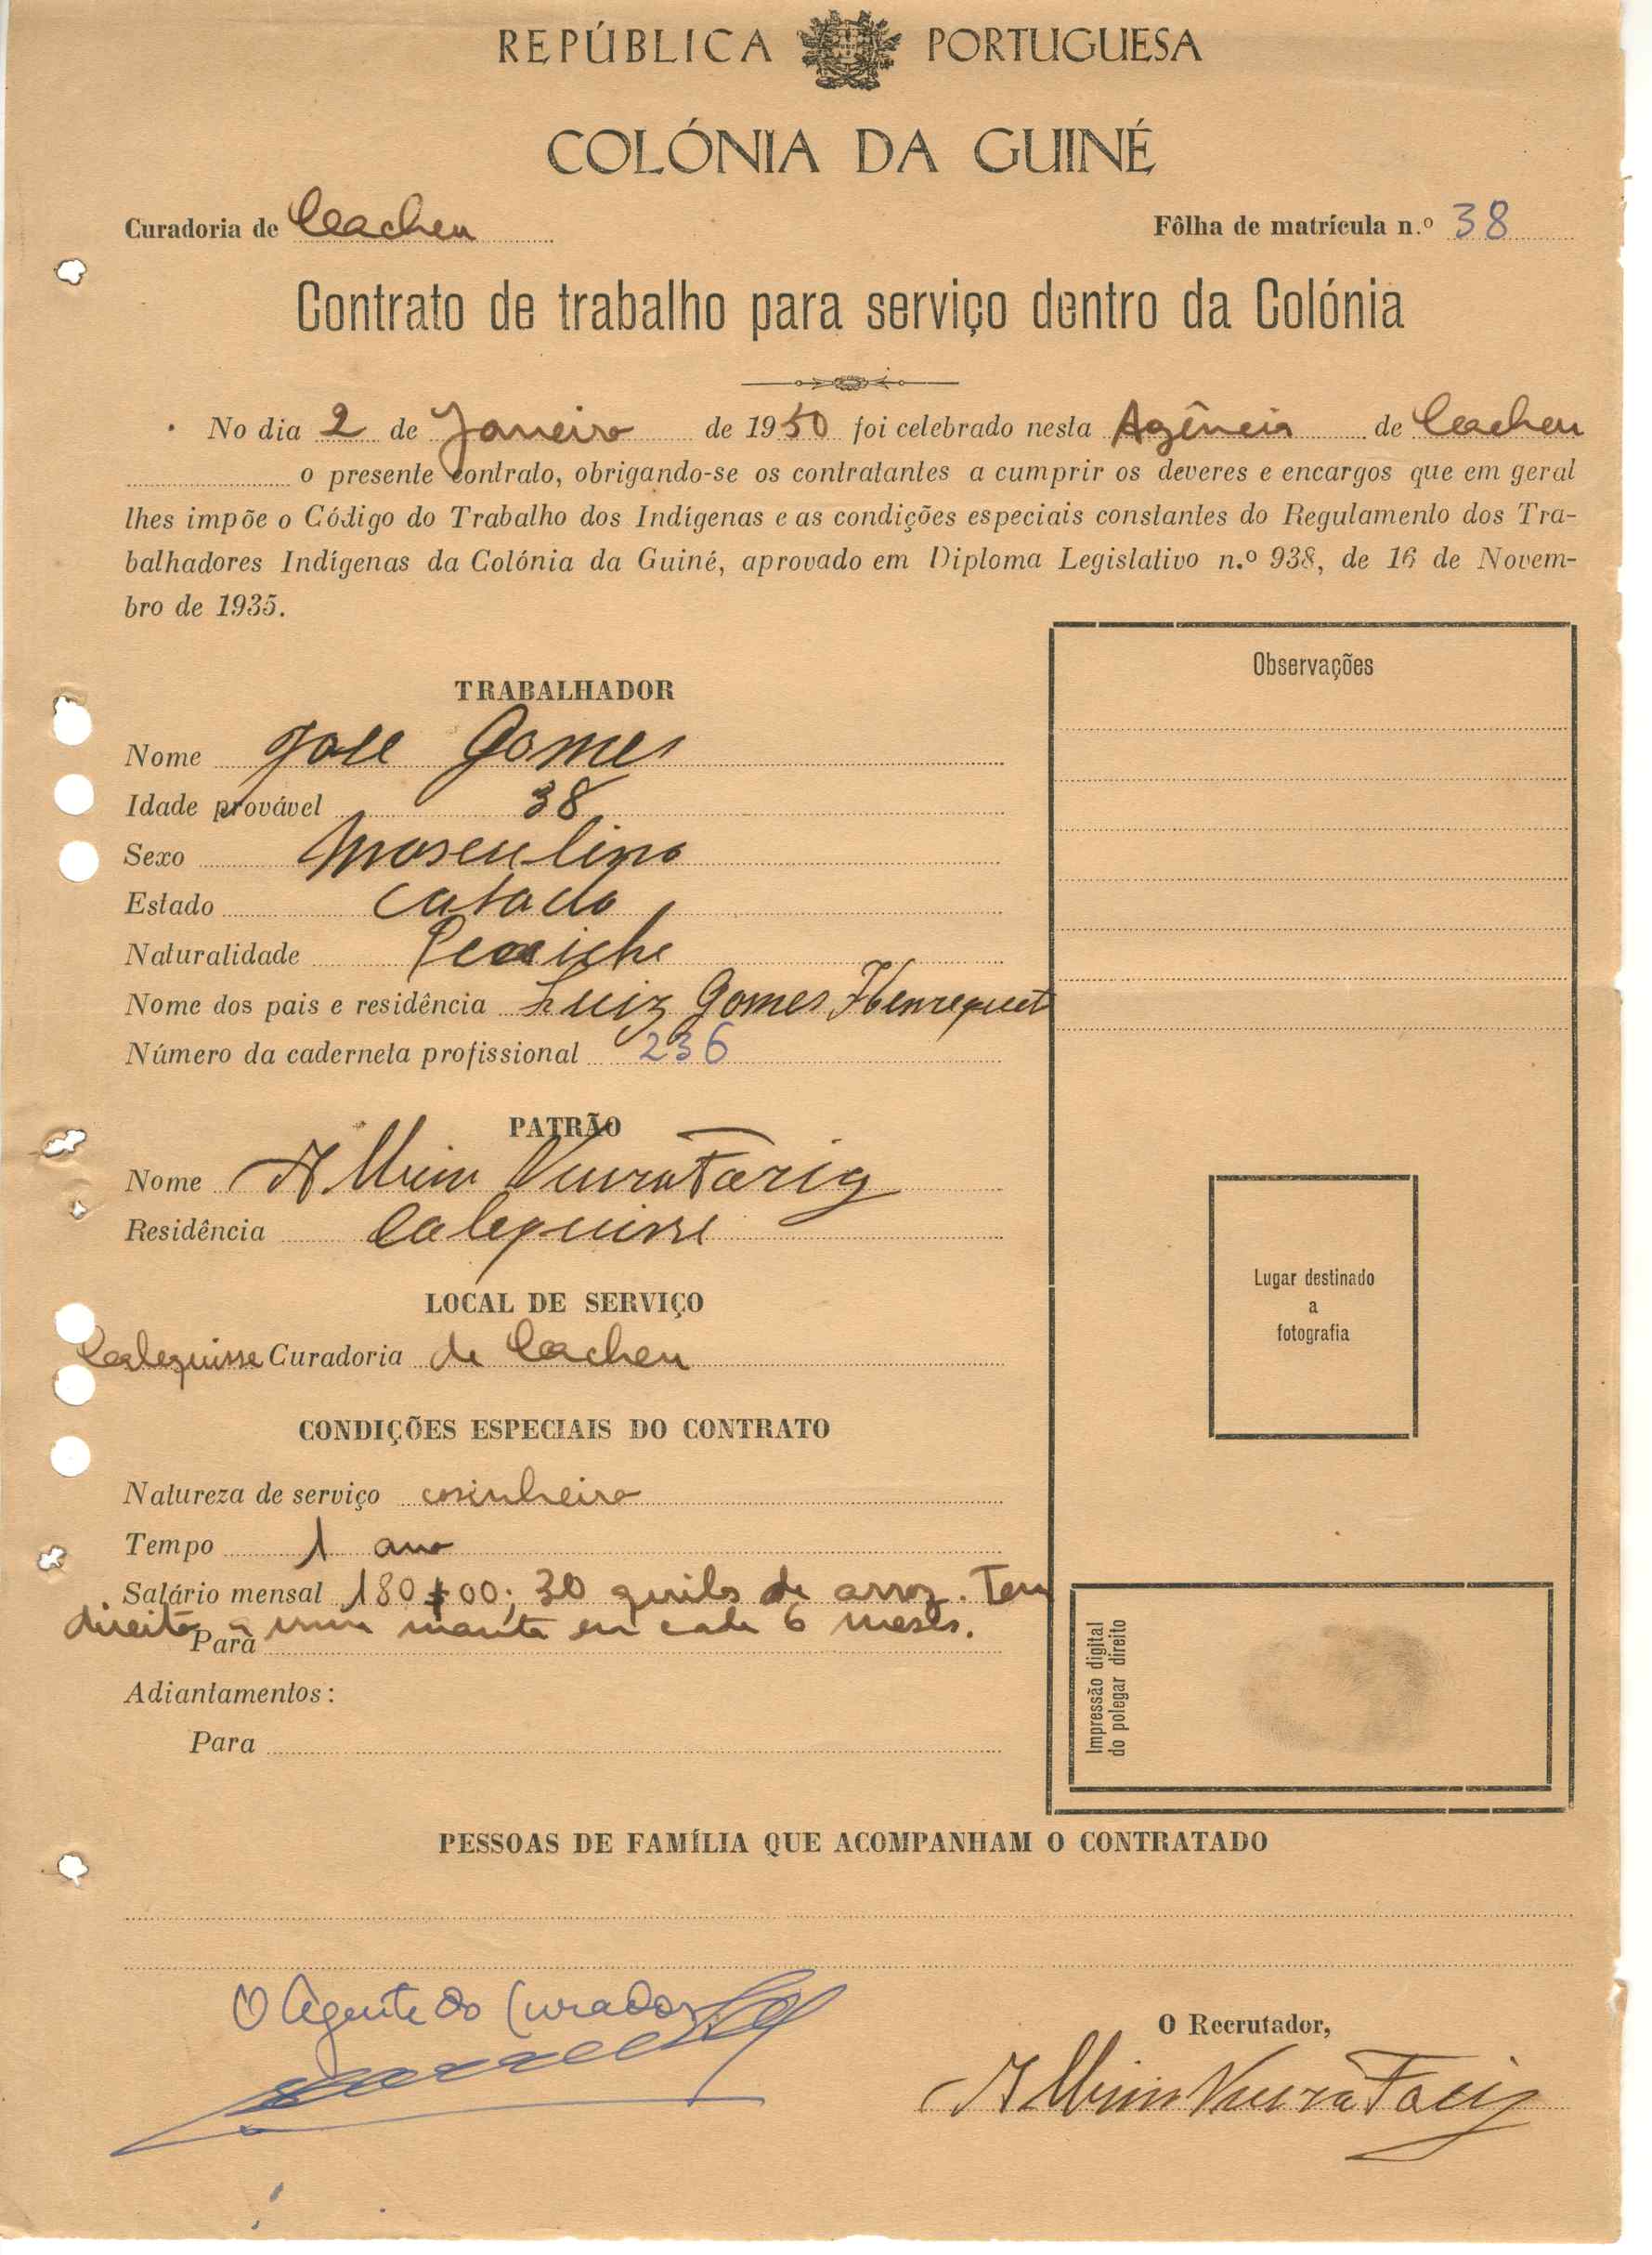 REPÚBLICA PORTUGUESA
COLÓNIA DA GUINÉ
Curadoria de Cacheu
Fôlha de matrícula n.º 38
Contrato de trabalho para serviço dentro da Colónia
No dia 2 de Janeiro de 1950 foi celebrado nesta Agência de Cacheu
o presente contrato, obrigando-se os contratantes a cumprir os deveres e encargos que em geral
lhes impõe o Código do Trabalho dos Indígenas e as condições especiais constantes do Regulamento dos Tra-
balhadores Indígenas da Colónia da Guiné, aprovado em Diploma Legislativo n.º 938, de 16 de Novem-
bro de 1935.
TRABALHADOR
Nome José Gomes
Idade provável 38
Sexo Masculino
Estado Casado
Naturalidade
Nome dos pais e residência Luiz Gomes
Número da caderneta profissional 236
PATRÃO
Nome
Residência Calequisse
LOCAL DE SERVIÇO
Calequisse Curadoria de Cacheu
CONDIÇÕES ESPECIAIS DO CONTRATO
Natureza de serviço cosinheiro
Tempo 1 ano
Salário mensal 180$00; 30 quilos de arroz. Tem
direito a uma manta em cada 6 meses.
Para
Adiantamentos:
Para
Observações
Lugar destinado
a
fotografia
Impressão digital
do polegar direito
PESSOAS DE FAMÍLIA QUE ACOMPANHAM O CONTRATADO
O Agente do Curador
O Recrutador,